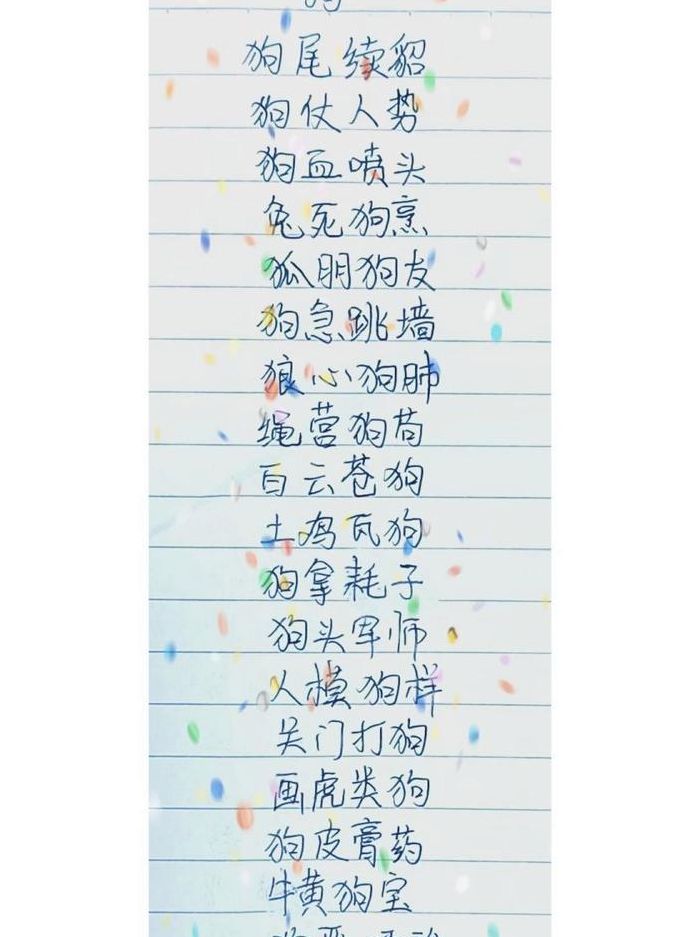 狗尾续貂
狗仗人势
狗血喷头
兔死狗烹
狐朋狗友
狗急跳墙
狼心狗肺
绳营狗苟
白云苍狗
土鸡瓦狗
狗拿耗子
狗头军师
人模狗样
关门打狗
画虎类狗
狗皮膏药
牛黄狗宝